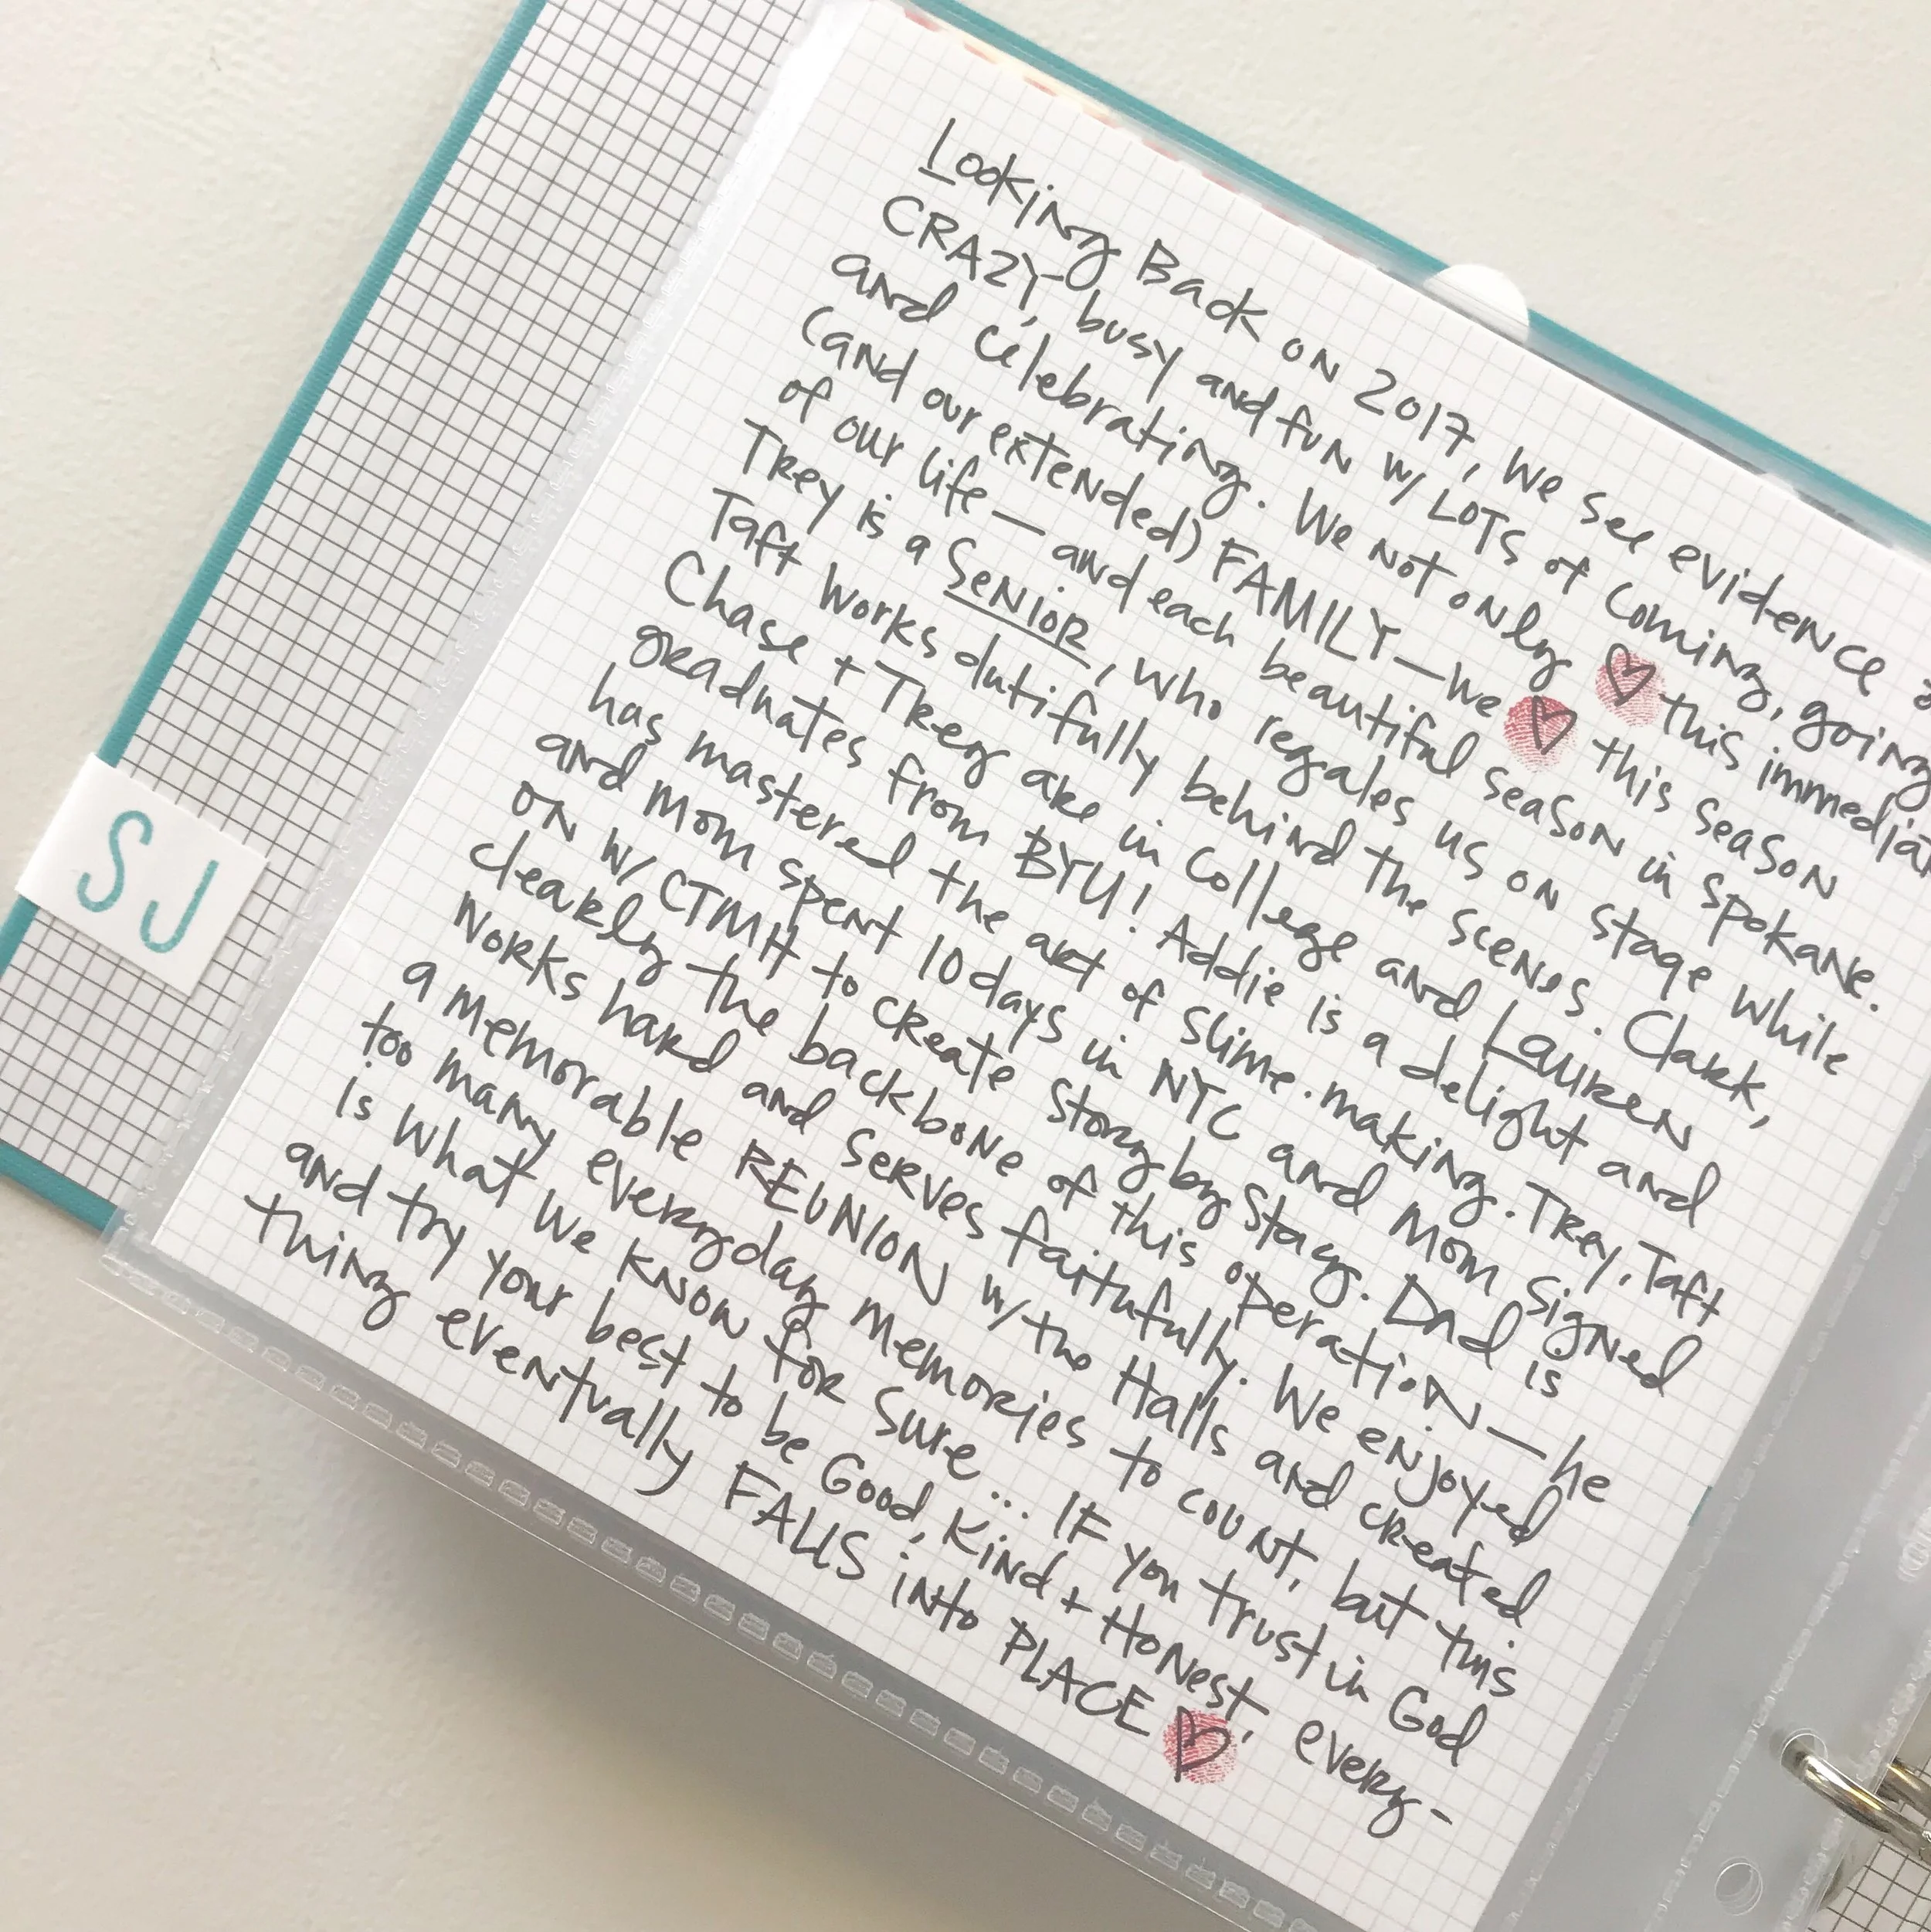 Looking Back on 2017, we see evidence
CRAZY, busy and fun w/ LOTS of coming, going
and celebrating. We not only ♡ this immedia
(and our extended) FAMILY—we ♡ this season
of our life — and each beautiful season in Spokane.
Trey is a SENIOR, who regales us on stage while
Taft works dutifully behind the scenes. Clark,
Chase + Trey are in College and Lauren
graduates from BYU! Addie is a delight and
has mastered the art of slime.making. Trey, Taft
and Mom spent 10 days in NYC and Mom signed
on w/ CTMH to create Story by Stacy. Dad is
clearly the backbone of this operation — he
works hard and serves faithfully. We enjoyed
a memorable REUNION w/ the Halls and created
too many everyday memories to count, but this
is what we know for sure... IF you trust in God
and try your best to be Good, Kind + Honest, every-
thing eventually FALLS into PLACE ♡
SJ